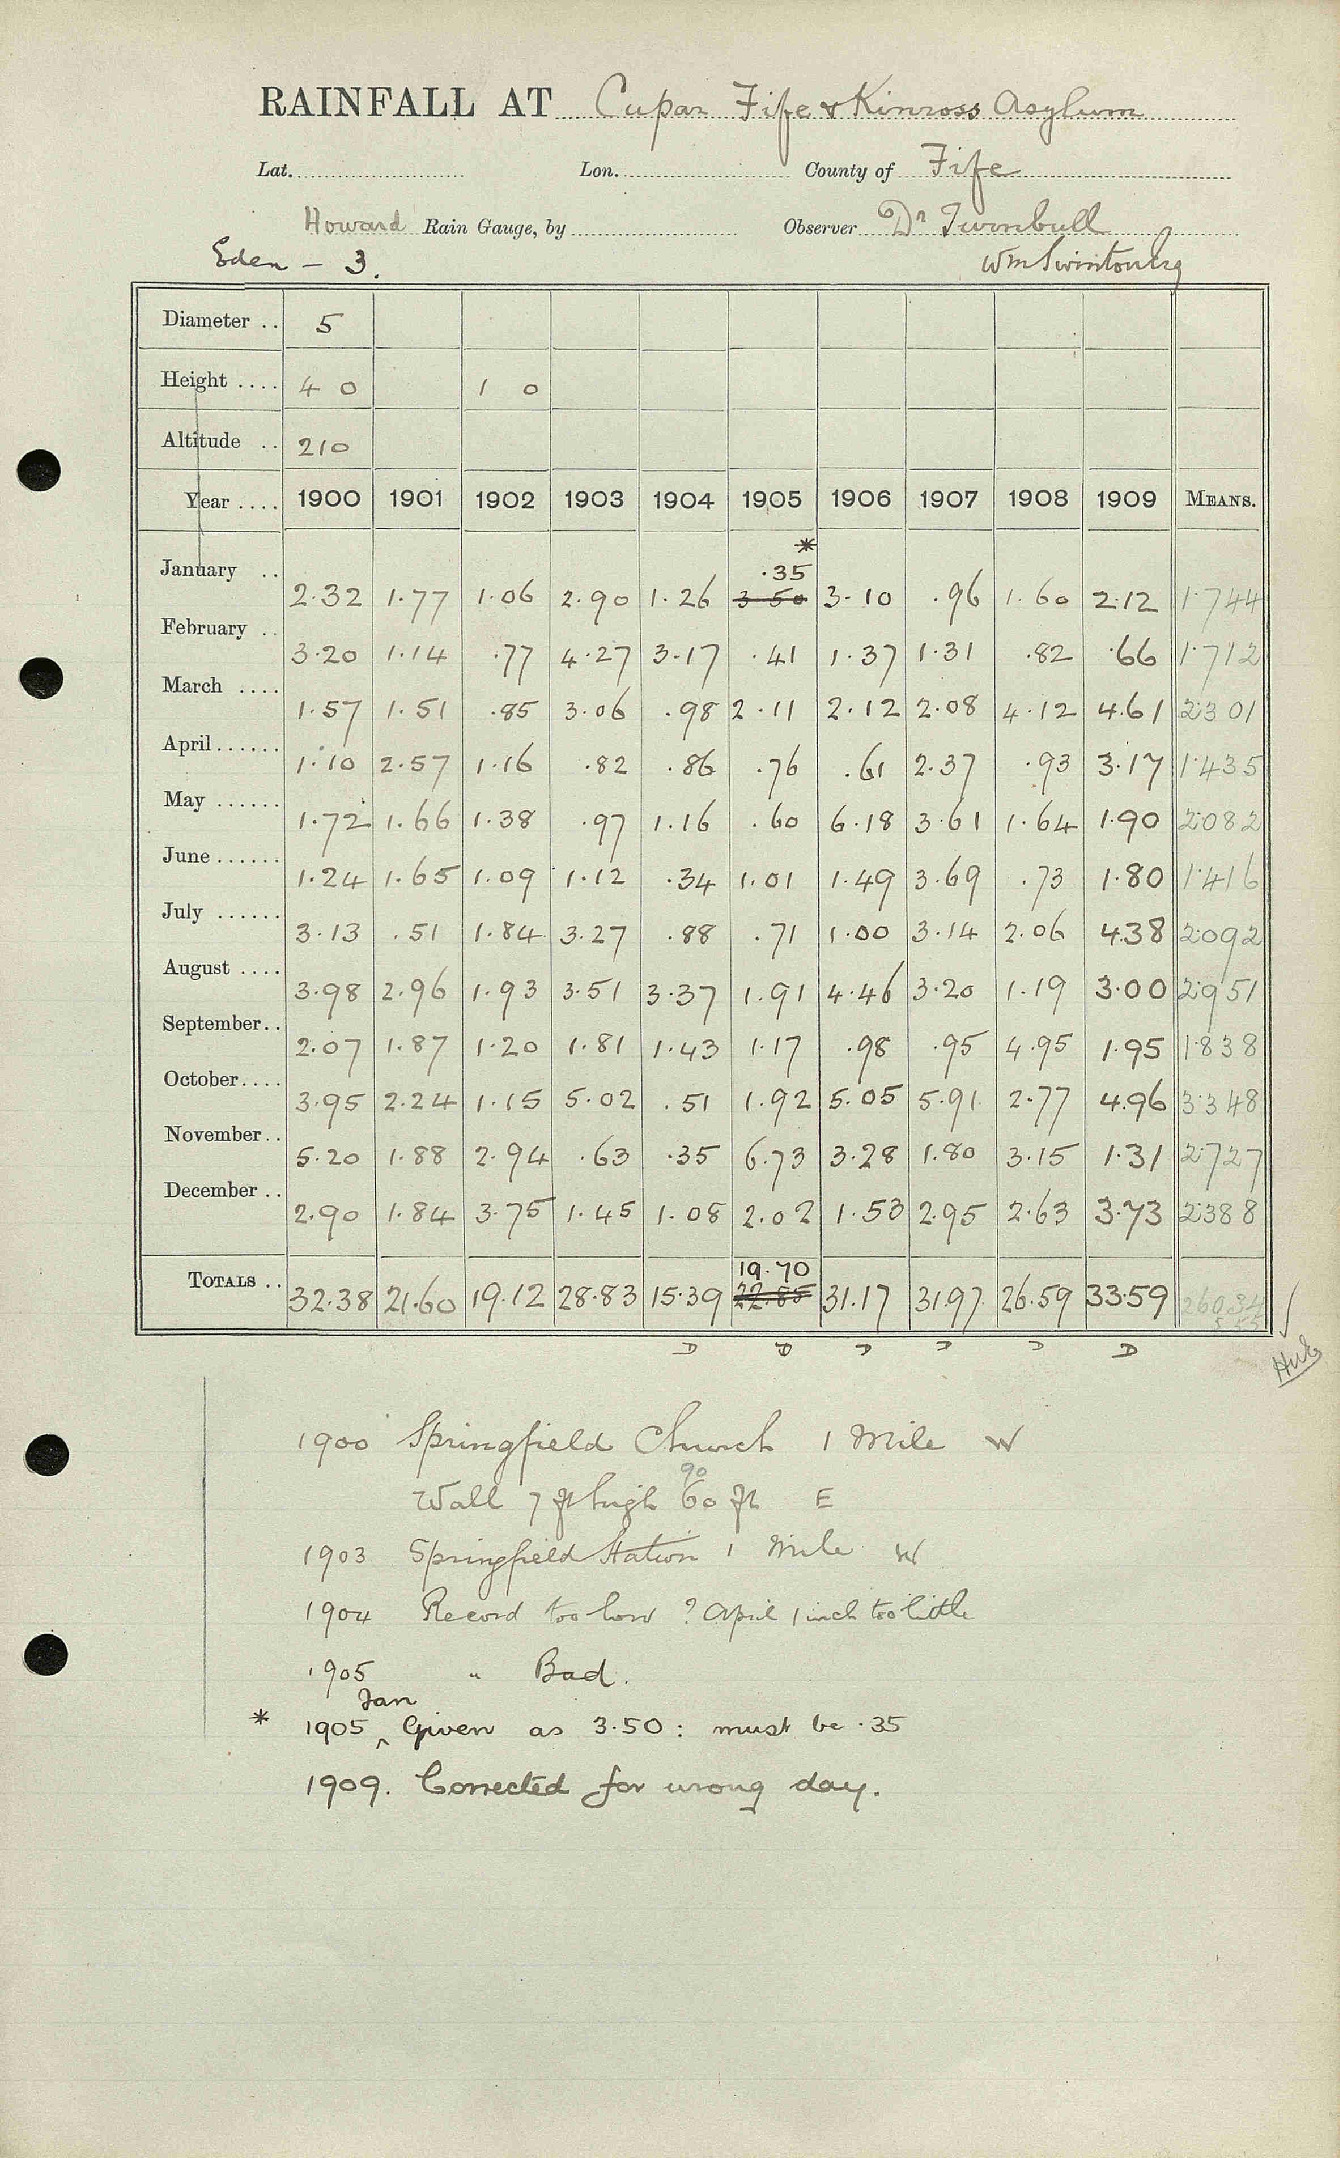 RAINFALL AT Cupar Fife & Kinross Asylum
Lat. Lon. County of Fife
Howard Rain Gauge, by Observer Dr Turnbull
Eden - 3. Wm Swinton Esq
Diameter .. 5
Height .... 4 0 1 0
Altitude .. 210
Year .... 1900 1901 1902 1903 1904 1905 1906 1907 1908 1909 MEANS.
* .35
January .. 2.32 1.77 1.06 2.90 1.26 3.50 3.10 .96 1.60 2.12 1.744
February .. 3.20 1.14 .77 4.27 3.17 .41 1.37 1.31 .82 .66 1.712
March .... 1.57 1.51 .85 3.06 .98 2.11 2.12 2.08 4.12 4.61 2.301
April ...... 1.10 2.57 1.16 .82 .86 .76 .61 2.37 .93 3.17 1.435
May ...... 1.72 1.66 1.38 .97 1.16 .60 6.18 3.61 1.64 1.90 2.082
June ...... 1.24 1.65 1.09 1.12 .34 1.01 1.49 3.69 .73 1.80 1.416
July ...... 3.13 .51 1.84 3.27 .88 .71 1.00 3.14 2.06 4.38 2.092
August .... 3.98 2.96 1.93 3.51 3.37 1.91 4.46 3.20 1.19 3.00 2.951
September.. 2.07 1.87 1.20 1.81 1.43 1.17 .98 .95 4.95 1.95 1.838
October.... 3.95 2.24 1.15 5.02 .51 1.92 5.05 5.91 2.77 4.96 3.348
November.. 5.20 1.88 2.94 .63 .35 6.73 3.28 1.80 3.15 1.31 2.727
December .. 2.90 1.84 3.75 1.45 1.08 2.02 1.53 2.95 2.63 3.73 2.388
19.70
TOTALS .. 32.38 21.60 19.12 28.83 15.39 22.85 31.17 31.97 26.59 33.59 26.034
D D D D D D
1900 Springfield Church 1 Mile W
90
Wall 7 ft high 60 ft E
1903 Springfield Station 1 Mile W
1904 Record too low ? April 1 inch too little
1905 " Bad.
Jan
* 1905 ^ Given as 3.50: must be .35
1909. Corrected for wrong day.